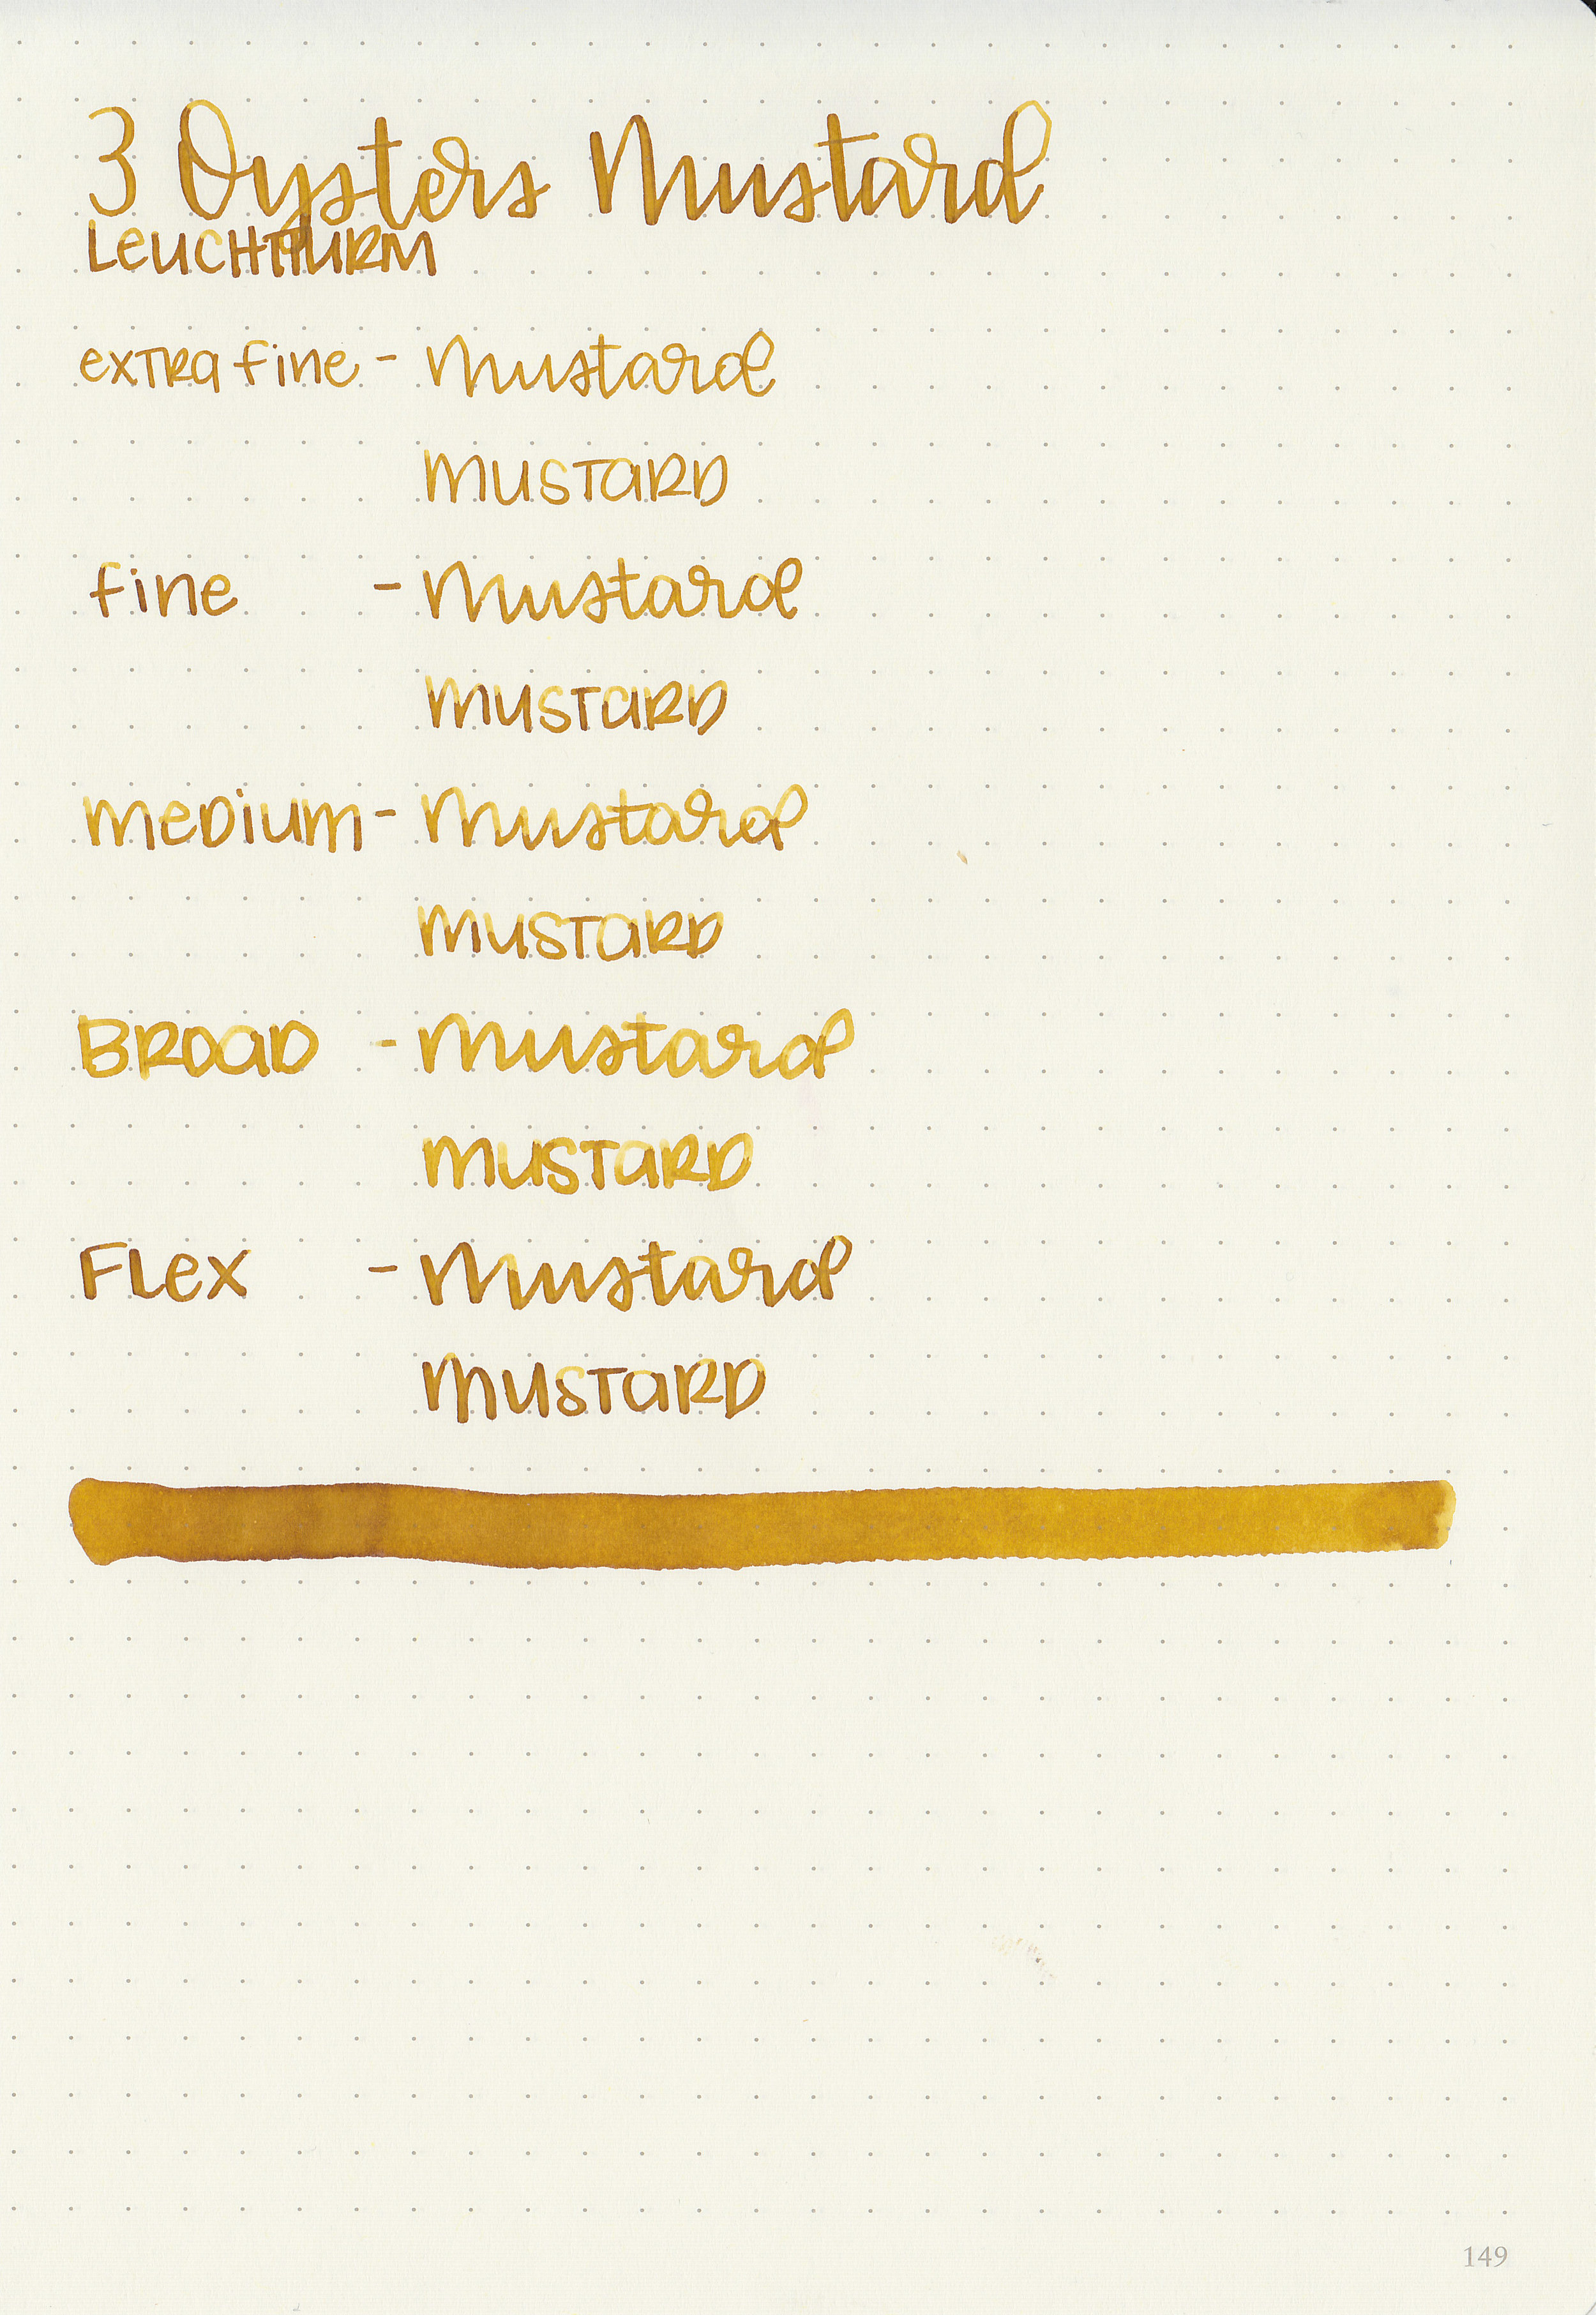 3 Oysters Mustard
LeucHTTURM
exTRa fine - Mustard
MUSTaRD
fine - Mustard
MUSTaRD
MeDium - Mustard
MUSTaRD
BROaD - Mustard
MUSTaRD
FLex - Mustard
MUSTaRD
149